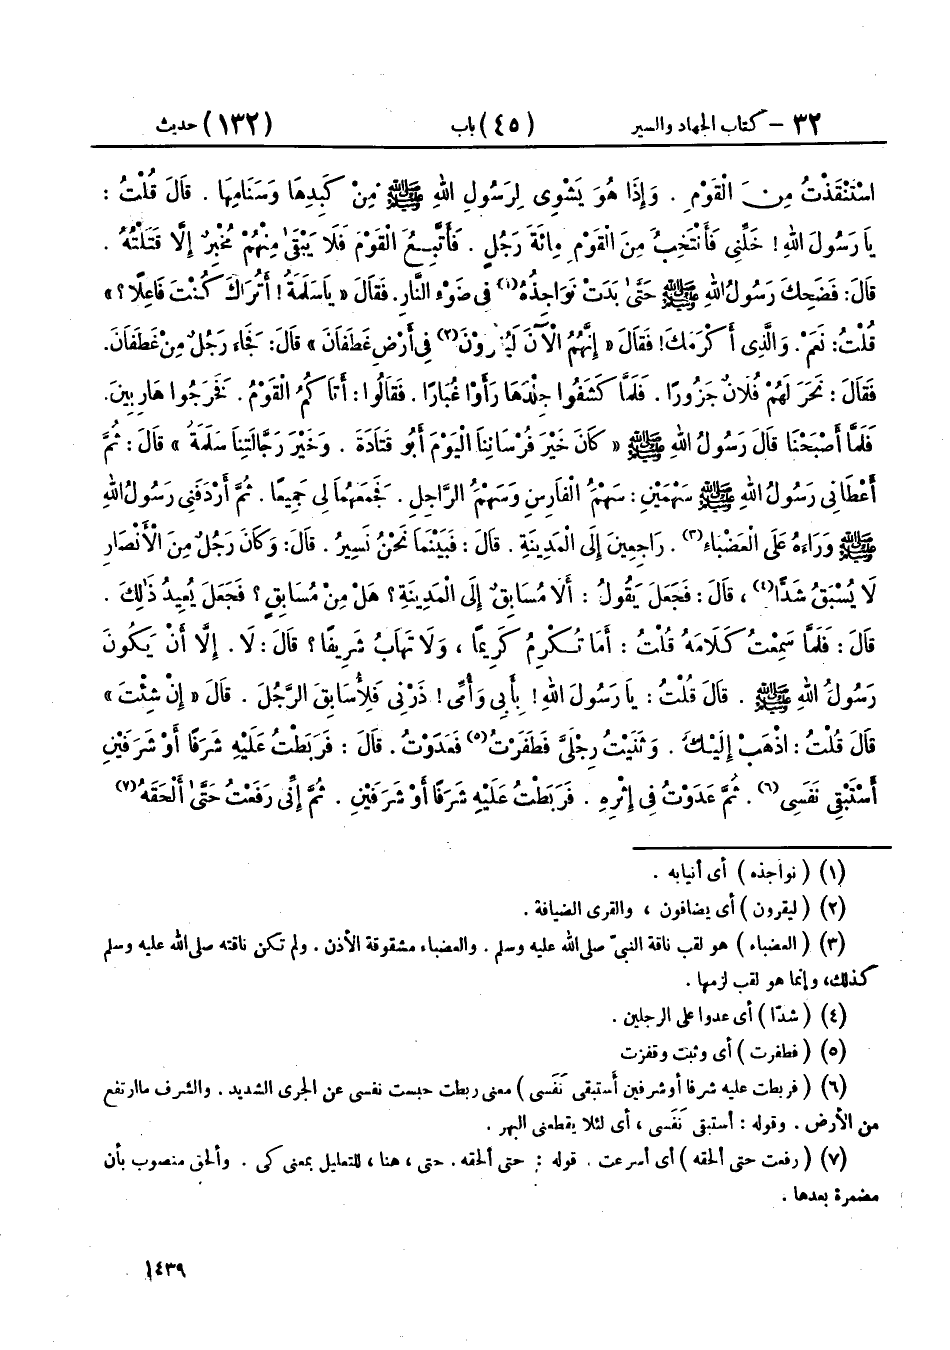 ٣٢ - كتاب الجهاد والسير (٤٥) باب (١٣٢) حديث
اسْتَنْقَذْتُ مِنَ الْقَوْمِ . وَإِذَا هُوَ يَشْوِى لِرَسُولِ اللهِ ﷺ مِنْ كَبِدِهَا وَسَنَامِهَا . قَالَ قُلْتُ :
يَا رَسُولَ اللهِ ! خَلِّنِى فَأَنْتَخِبُ مِنَ الْقَوْمِ مِائَةَ رَجُلٍ . فَأَتَّبِعُ الْقَوْمَ فَلَا يَبْقَىٰ مِنْهُمْ مُخْبِرٌ إِلَّا قَتَلْتُهُ .
قَالَ : فَضَحِكَ رَسُولُ اللهِ ﷺ حَتَّىٰ بَدَتْ نَوَاجِذُهُ(١) فِى ضَوْءِ النَّارِ . فَقَالَ « يَا سَلَمَةُ ! أَتُرَاكَ كُنْتَ فَاعِلًا ؟ »
قُلْتُ : نَعَمْ . وَالَّذِى أَكْرَمَكَ ! فَقَالَ « إِنَّهُمُ الْآنَ لَيُقْرَوْنَ(٢) فِى أَرْضِ غَطَفَانَ » قَالَ : فَجَاء رَجُلٌ مِنْ غَطَفَانَ .
فَقَالَ : نَحَرَ لَهُمْ فُلَانٌ جَزُورًا . فَلَمَّا كَشَفُوا جِلْدَهَا رَأَوْا غُبَارًا . فَقَالُوا : أَتَاكُمُ الْقَوْمُ . فَخَرَجُوا هَارِبِينَ .
فَلَمَّا أَصْبَحْنَا قَالَ رَسُولُ اللهِ ﷺ « كَانَ خَيْرَ فُرْسَانِنَا الْيَوْمَ أَبُو قَتَادَةَ . وَخَيْرَ رَجَّالَتِنَا سَلَمَةُ » قَالَ : ثُمَّ
أَعْطَانِى رَسُولُ اللهِ ﷺ سَهْمَيْنِ : سَهْمُ الْفَارِسِ وَسَهْمُ الرَّاجِلِ . فَجَمَعَهُمَا لِى جَمِيعًا . ثُمَّ أَرْدَفَنِى رَسُولُ اللهِ
ﷺ وَرَاءَهُ عَلَى الْعَضْبَاءِ(٣) . رَاجِعِينَ إِلَى الْمَدِينَةِ . قَالَ : فَبَيْنَمَا نَحْنُ نَسِيرُ . قَالَ : وَكَانَ رَجُلٌ مِنَ الْأَنْصَارِ
لَا يُسْبَقُ شَدًّا(٤) ، قَالَ : فَجَعَلَ يَقُولُ : أَلَا مُسَابِقٌ إِلَى الْمَدِينَةِ ؟ هَلْ مِنْ مُسَابِقٍ ؟ فَجَعَلَ يُعِيدُ ذَٰلِكَ .
قَالَ : فَلَمَّا سَمِعْتُ كَلَامَهُ قُلْتُ : أَمَا تُكْرِمُ كَرِيمًا ، وَلَا تَهَابُ شَرِيفًا ؟ قَالَ : لَا . إِلَّا أَنْ يَكُونَ
رَسُولُ اللهِ ﷺ . قَالَ قُلْتُ : يَا رَسُولَ اللهِ ! بِأَبِى وَأُمِّى ! ذَرْنِى فَلِأُسَابِقَ الرَّجُلَ . قَالَ « إِنْ شِئْتَ »
قَالَ قُلْتُ : اذْهَبْ إِلَيْكَ . وَثَنَيْتُ رِجْلَىَّ فَطَفَرْتُ(٥) فَعَدَوْتُ . قَالَ : فَرَبَطْتُ عَلَيْهِ شَرَفًا أَوْ شَرَفَيْنِ
أَسْتَبْقِى نَفَسِى(٦) . ثُمَّ عَدَوْتُ فِى إِثْرِهِ . فَرَبَطْتُ عَلَيْهِ شَرَفًا أَوْ شَرَفَيْنِ . ثُمَّ إِنِّى رَفَعْتُ حَتَّىٰ أَلْحَقَهُ(٧)
(١) ( نواجذه ) أى أنيابه .
(٢) ( ليقرون ) أى يضافون ، والقرى الضيافة .
(٣) ( العضباء ) هو لقب ناقة النبىّ صلى الله عليه وسلم . والعضباء مشقوقة الأذن . ولم تكن ناقته صلى الله عليه وسلم
كذلك، وإنما هو لقب لزمها .
(٤) ( شدّا ) أى عدوا على الرجلين .
(٥) ( فطفرت ) أى وثبت وقفزت
(٦) ( فربطت عليه شرفا أو شرفين أستبقى نَفَسى ) معنى ربطت حبست نفسى عن الجرى الشديد . والشرف ما ارتفع
من الأرض . وقوله : أستبقى نَفَسى ، أى لئلا يقطعنى البهر .
(٧) ( رفعت حتى ألحقه ) أى أسرعت . قوله : حتى ألحقه . حتى ، هنا ، للتعليل بمعنى كى . وألحق منصوب بأن
مضمرة بعدها .
١٤٣٩